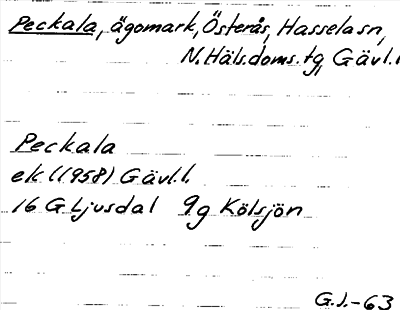 Peckala, ägomark, Österås, Hassela sn,
N. Häls. doms. tg, Gävl. l
Peckala
ek (1958) Gävl. l.
16 G Ljusdal 9g Kölsjön
G.J.-63